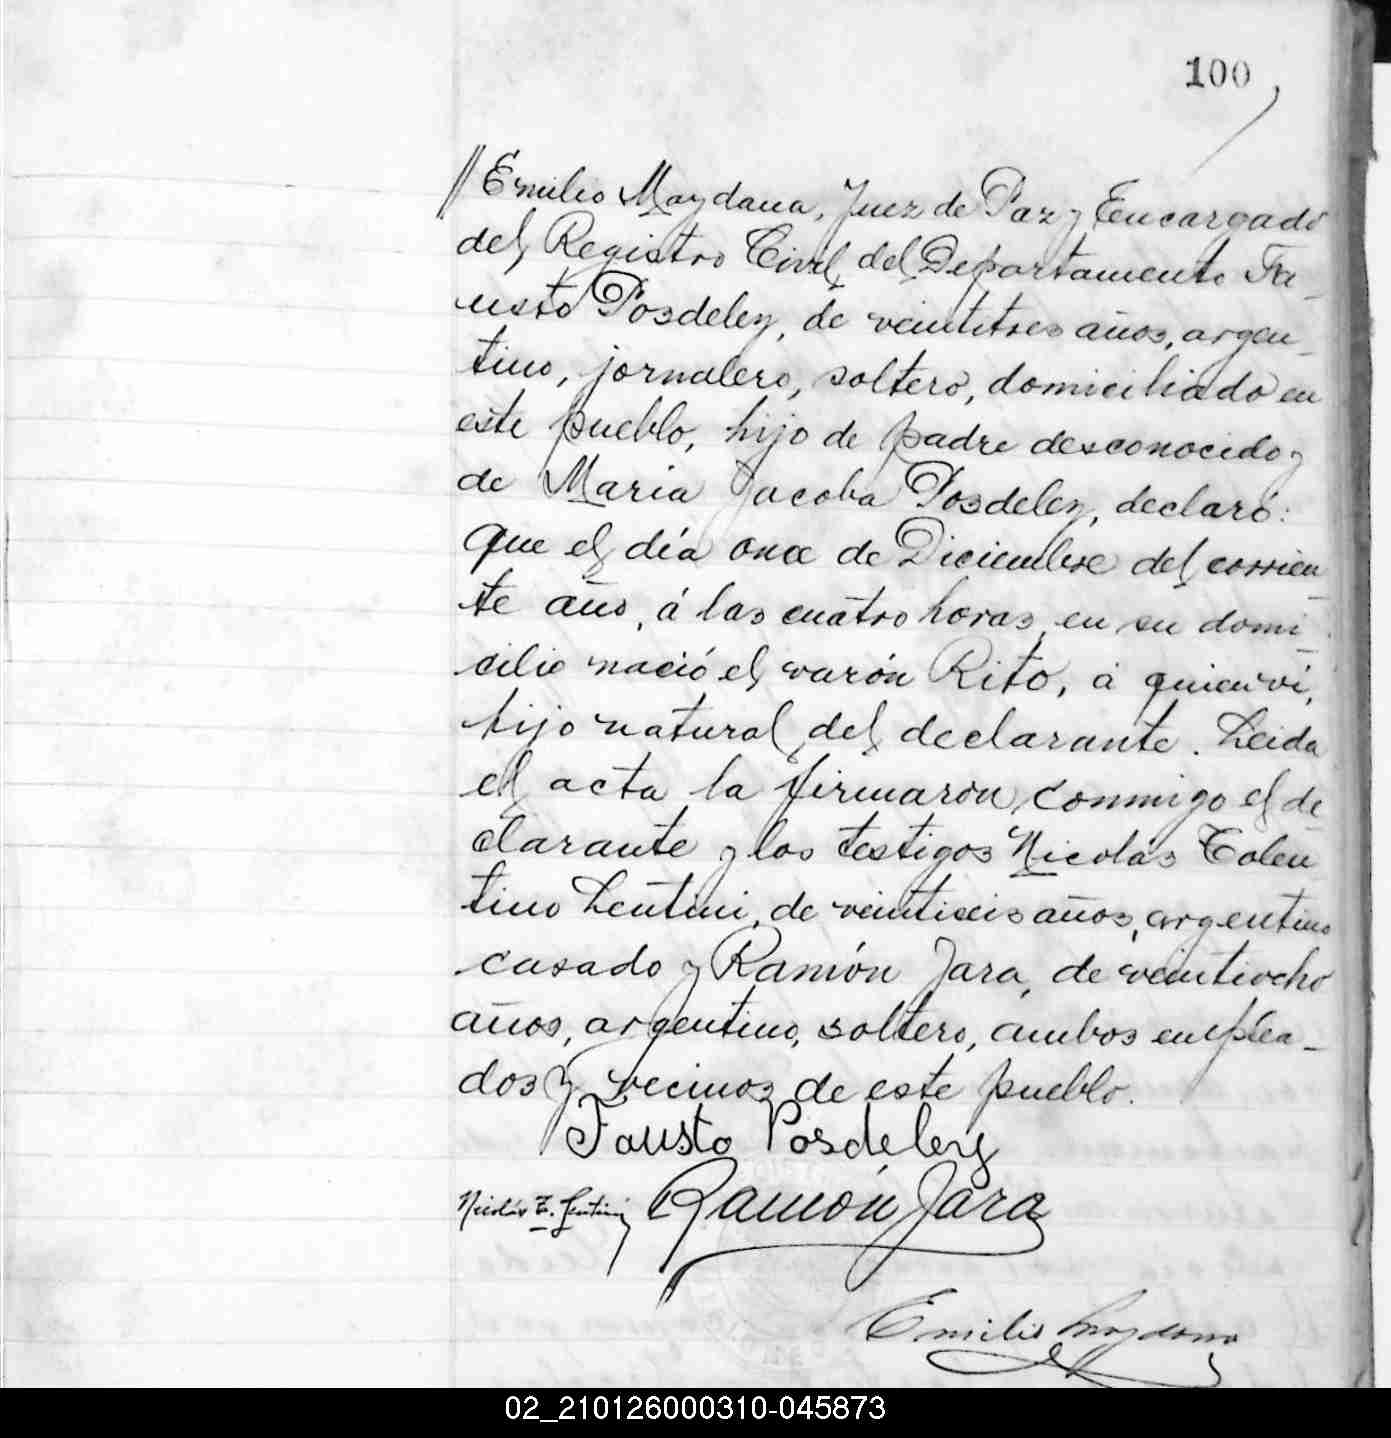 100
Emilio Maydana, Juez de Paz y Encargado
del Registro Civil del Departamento Fa-
usto Posdeley, de veintitres años, argen-
tino, jornalero, soltero, domiciliado en
este pueblo, hijo de padre desconocido y
de María Jacoba Posdeley, declaró:
Que el día once de Diciembre del corrien-
te año, á las cuatro horas, en su domi-
cilio nació el varón Rito, á quien ví,
hijo natural del declarante. Leida
el acta la firmaron conmigo el de-
clarante y los testigos Nicolás Tolen-
tino Lentini, de veintiseis años, argentino
casado y Ramón Jara, de veintiocho
años, argentino, soltero, ambos emplea-
dos y vecinos de este pueblo.
Fausto Posdeley
Nicolás T. Lentini Ramón Jara
Emilio Maydana
02_210126000310-045873